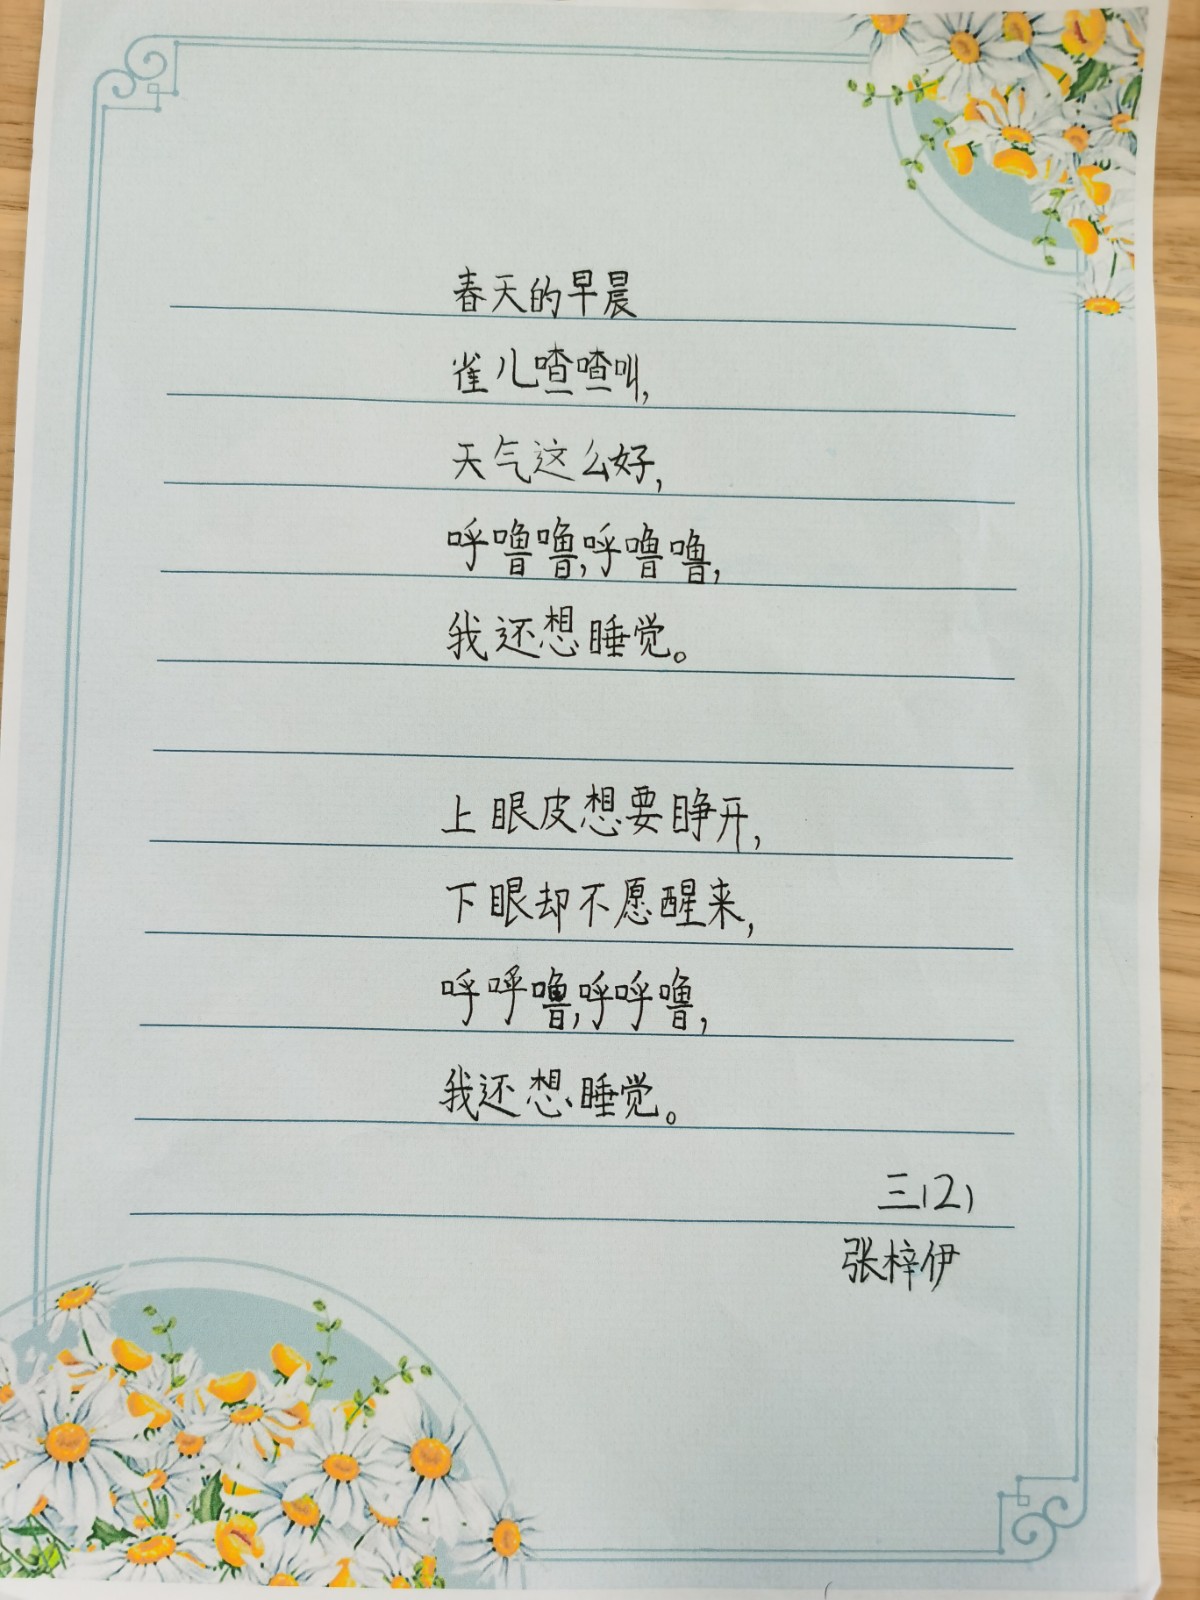 春天的早晨
雀儿喳喳叫，
天气这么好，
呼噜噜，呼噜噜，
我还想睡觉。
上眼皮想要睁开，
下眼却不愿醒来，
呼呼噜，呼呼噜，
我还想睡觉。
三(2)
张梓伊